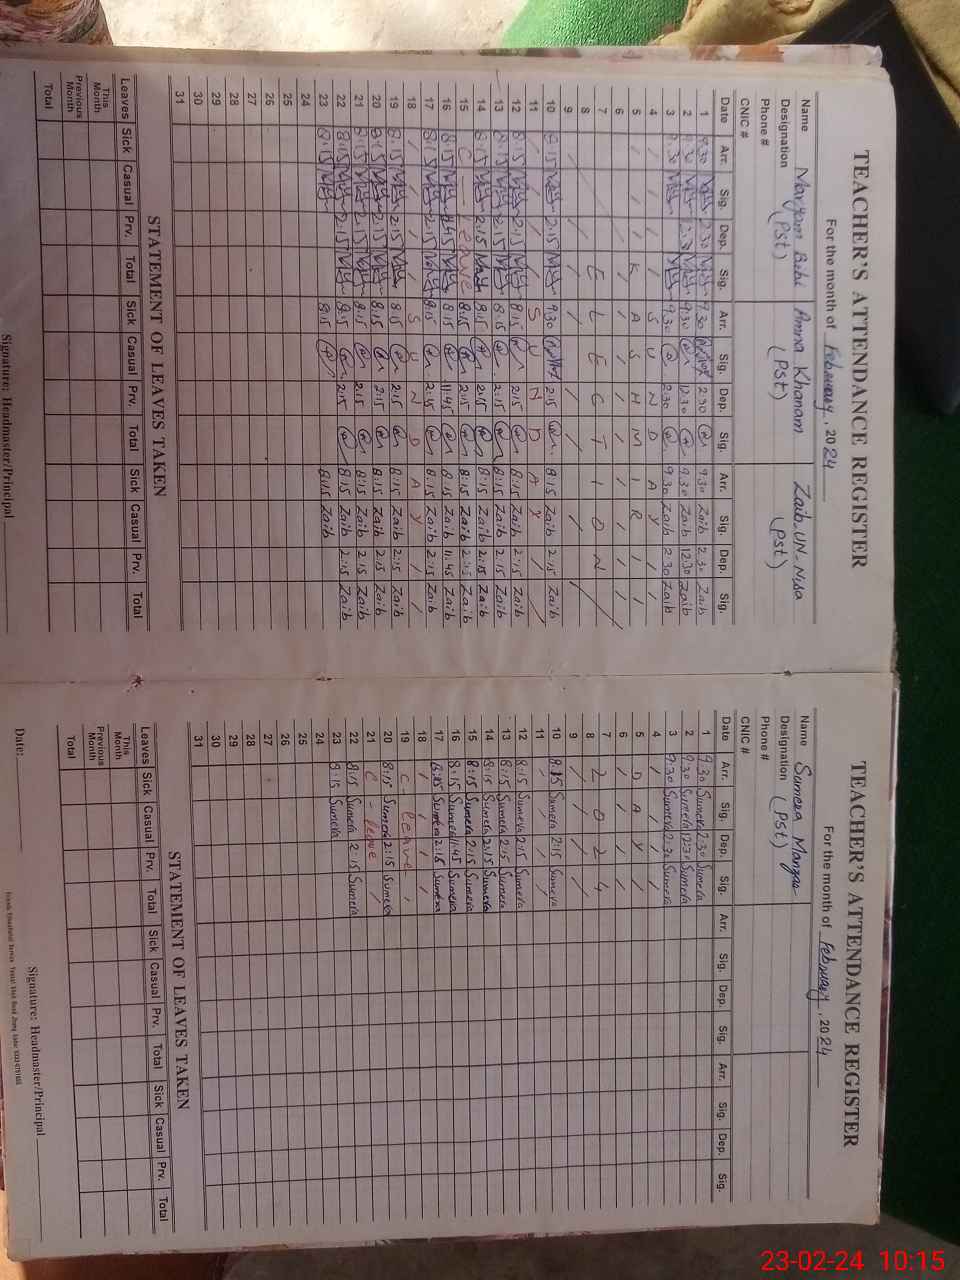 TEACHER'S ATTENDANCE REGISTER
For the month of February, 2024
Name Maryam Bibi Amna Khanam Zaib-UN-Nisa
Designation (PST) (PST) (PST)
Phone #
CNIC #
Date Arr. Sig. Dep. Sig. Arr. Sig. Dep. Sig. Arr. Sig. Dep. Sig.
1 9.30 2.30 9.30 2.30 9.30 Zaib 2.30 Zaib
2 9.30 2.30 9.30 12.30 9.30 Zaib 12.30 Zaib
3 9.30 9.30 2.30 9.30 Zaib 2.30 Zaib
4 / / / / S U N D A Y / /
5 / / / K A S H M I R / /
6 / / / / / / / / / /
7 E L E C T I O N
8 /
9 / / / / / / /
10 8:15 2:15 9.30 2.15 8:15 Zaib 2:15 Zaib
11 / / / / S U N D A Y / /
12 8:15 2:15 8:15 2:15 8:15 Zaib 2:15 Zaib
13 8:15 2:15 8:15 2:15 8:15 Zaib 2:15 Zaib
14 8:15 2:15 8:15 2:15 8:15 Zaib 2:15 Zaib
15 C - leave 8:15 2:15 8:15 Zaib 2:15 Zaib
16 8:15 11:45 8:15 11:45 8:15 Zaib 11:45 Zaib
17 8:15 2:15 8:15 2:15 8:15 Zaib 2:15 Zaib
18 / / / / S U N D A Y / /
19 8:15 2:15 8:15 2:15 8:15 Zaib 2:15 Zaib
20 8:15 2:15 8:15 2:15 8:15 Zaib 2:15 Zaib
21 8:15 2:15 8:15 2:15 8:15 Zaib 2:15 Zaib
22 8:15 2:15 8:15 2:15 8:15 Zaib 2:15 Zaib
23 8:15 8:15 8:15 Zaib
24
25
26
27
28
29
30
31
STATEMENT OF LEAVES TAKEN
Leaves Sick Casual Prv. Total Sick Casual Prv. Total Sick Casual Prv. Total
This Month
Previous Month
Total
Signature: Headmaster/Principal
TEACHER'S ATTENDANCE REGISTER
For the month of February, 2024
Name Sumera Manzar
Designation (PST)
Phone #
CNIC #
Date Arr. Sig. Dep. Sig. Arr. Sig. Dep. Sig. Arr. Sig. Dep. Sig.
1 9.30 Sumera 2.30 Sumera
2 9.30 Sumera 12:30 Sumera
3 9:30 Sumera 2:30 Sumera
4 / / / /
5 D A Y /
6 / / / /
7 2 0 2 4
8 / / / /
9 / / / /
10 8:15 Sumera 2:15 Sumera
11 / / / /
12 8:15 Sumera 2:15 Sumera
13 8:15 Sumera 2:15 Sumera
14 8:15 Sumera 2:15 Sumera
15 8:15 Sumera 2:15 Sumera
16 8:15 Sumera 11:45 Sumera
17 8:15 Sumera 2:15 Sumera
18 / / / /
19 C - leave
20 8:15 Sumera 2:15 Sumera
21 C - leave
22 8:15 Sumera 2:15 Sumera
23 8:15 Sumera
24
25
26
27
28
29
30
31
STATEMENT OF LEAVES TAKEN
Leaves Sick Casual Prv. Total Sick Casual Prv. Total Sick Casual Prv. Total
This Month
Previous Month
Total
Date: Signature: Headmaster/Principal
23-02-24 10:15